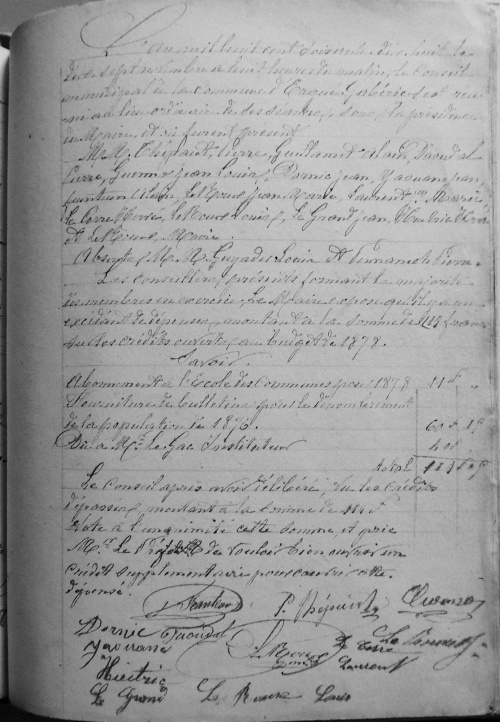 L'an mil huit cent soixante dix huit le
dix sept novembre à huit heures du matin, le Conseil
municipal de la commune d'Ergué Gabéric s'est réuni
au lieu ordinaire de ses séances, sous la présidence
du Maire, et où furent présent
M.M. Chépault, Pierre, Guillamet Alain, Daoudal
Pierre, Guenneg Jean Louis, Dornic Jean, Yaouanc Jean,
Feunteun Alain, Le Roux Jean Marie, Laurent Maurice,
Le Corre Pierre, Le Roux Louis, Le Grand Jean, Huitric Pierre
et Le Moure, Marie.
Absents M.M. Guyader Louis et Pierre.
Les Conseillers présents formant la majorité
des membres en exercice, Le Maire expose qu'il y a un
excédant de dépenses, montant à la somme de 114f francs
sur les crédits ouverts au budget de 1878.
Savoir
Abonnement à l'Ecole des Communes pour 1878 11f "
Fourniture de bulletins pour le dénombrement
de la population de 1876.
Dû à Mr. Le Gac Instituteur 40f
total
Le Conseil après avoir délibéré, Vu les crédits
dépassés, montant à la somme de 114f
Vote à l'unanimité cette somme, et prie
Mr. Le Préfet de vouloir bien ouvrir un
crédit supplémentaire pour couvrir cette
dépense.
Dornic Daoudal
Yaouanc Laurent
Huitric
Le Grand Le Roux Louis